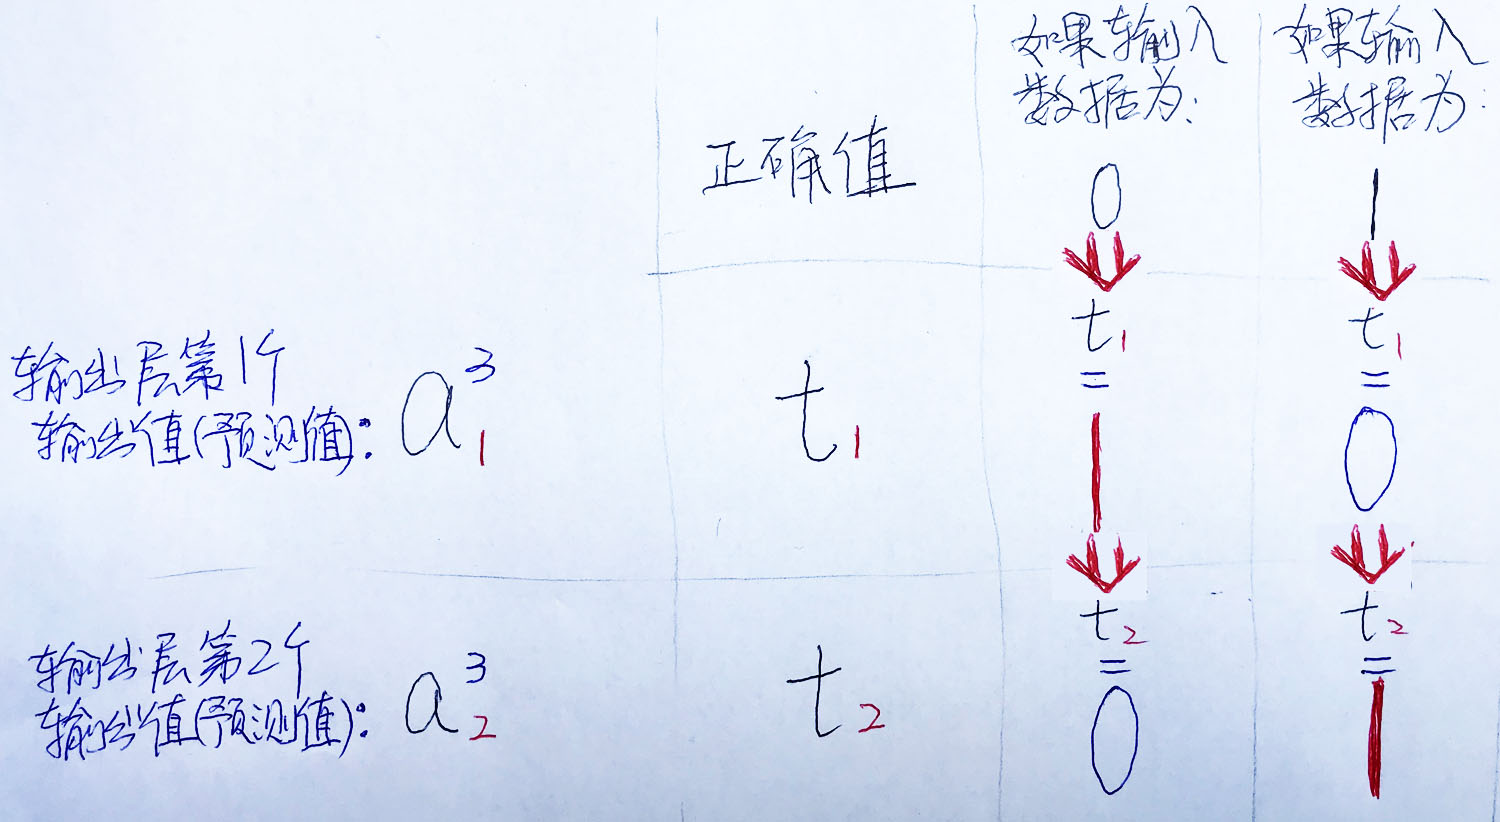 如果输入
数据为:
如果输入
数据为:
正确值
0
1
输出层第1个
输出值(预测值): a³₁
t₁
t₁
=
1
t₁
=
0
输出层第2个
输出值(预测值): a³₂
t₂
t₂
=
0
t₂
=
1